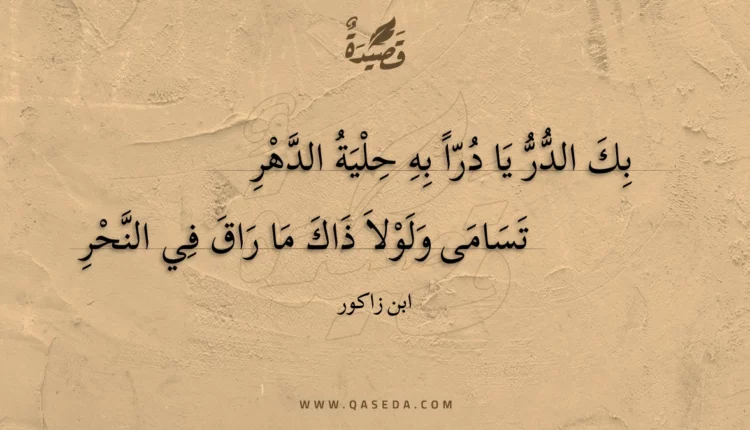 قَصِيدَةٌ
بِكَ الدُّرُّ يَا دُرّاً بِهِ حِلْيَةُ الدَّهْرِ
تَسَامَى وَلَوْلاَ ذَاكَ مَا رَاقَ فِي النَّحْرِ
ابن زاكور
WWW.QASEDA.COM